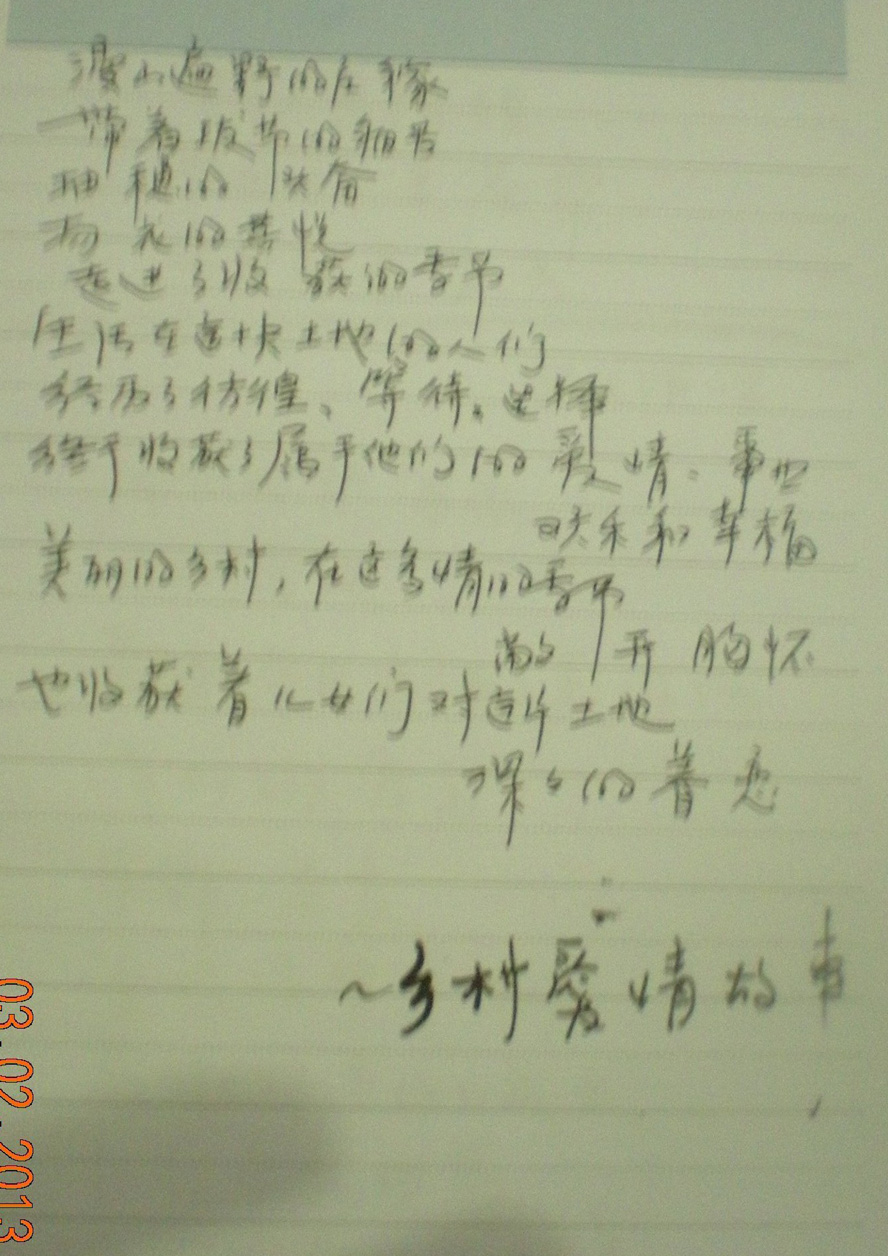 漫山遍野的庄稼
带着拔节的细节
抽穗的沉奋
扬花的喜悦
走进了收获的季节
生活在这块土地的人们
经历了彷徨、等待、选择
终于收获了属于他们的爱情、事业
欢乐和幸福
美丽的乡村,在这多情的季节
敞开胸怀
也收获着儿女们对这片土地
深々的眷恋
~乡村爱情故事
03.02.2013